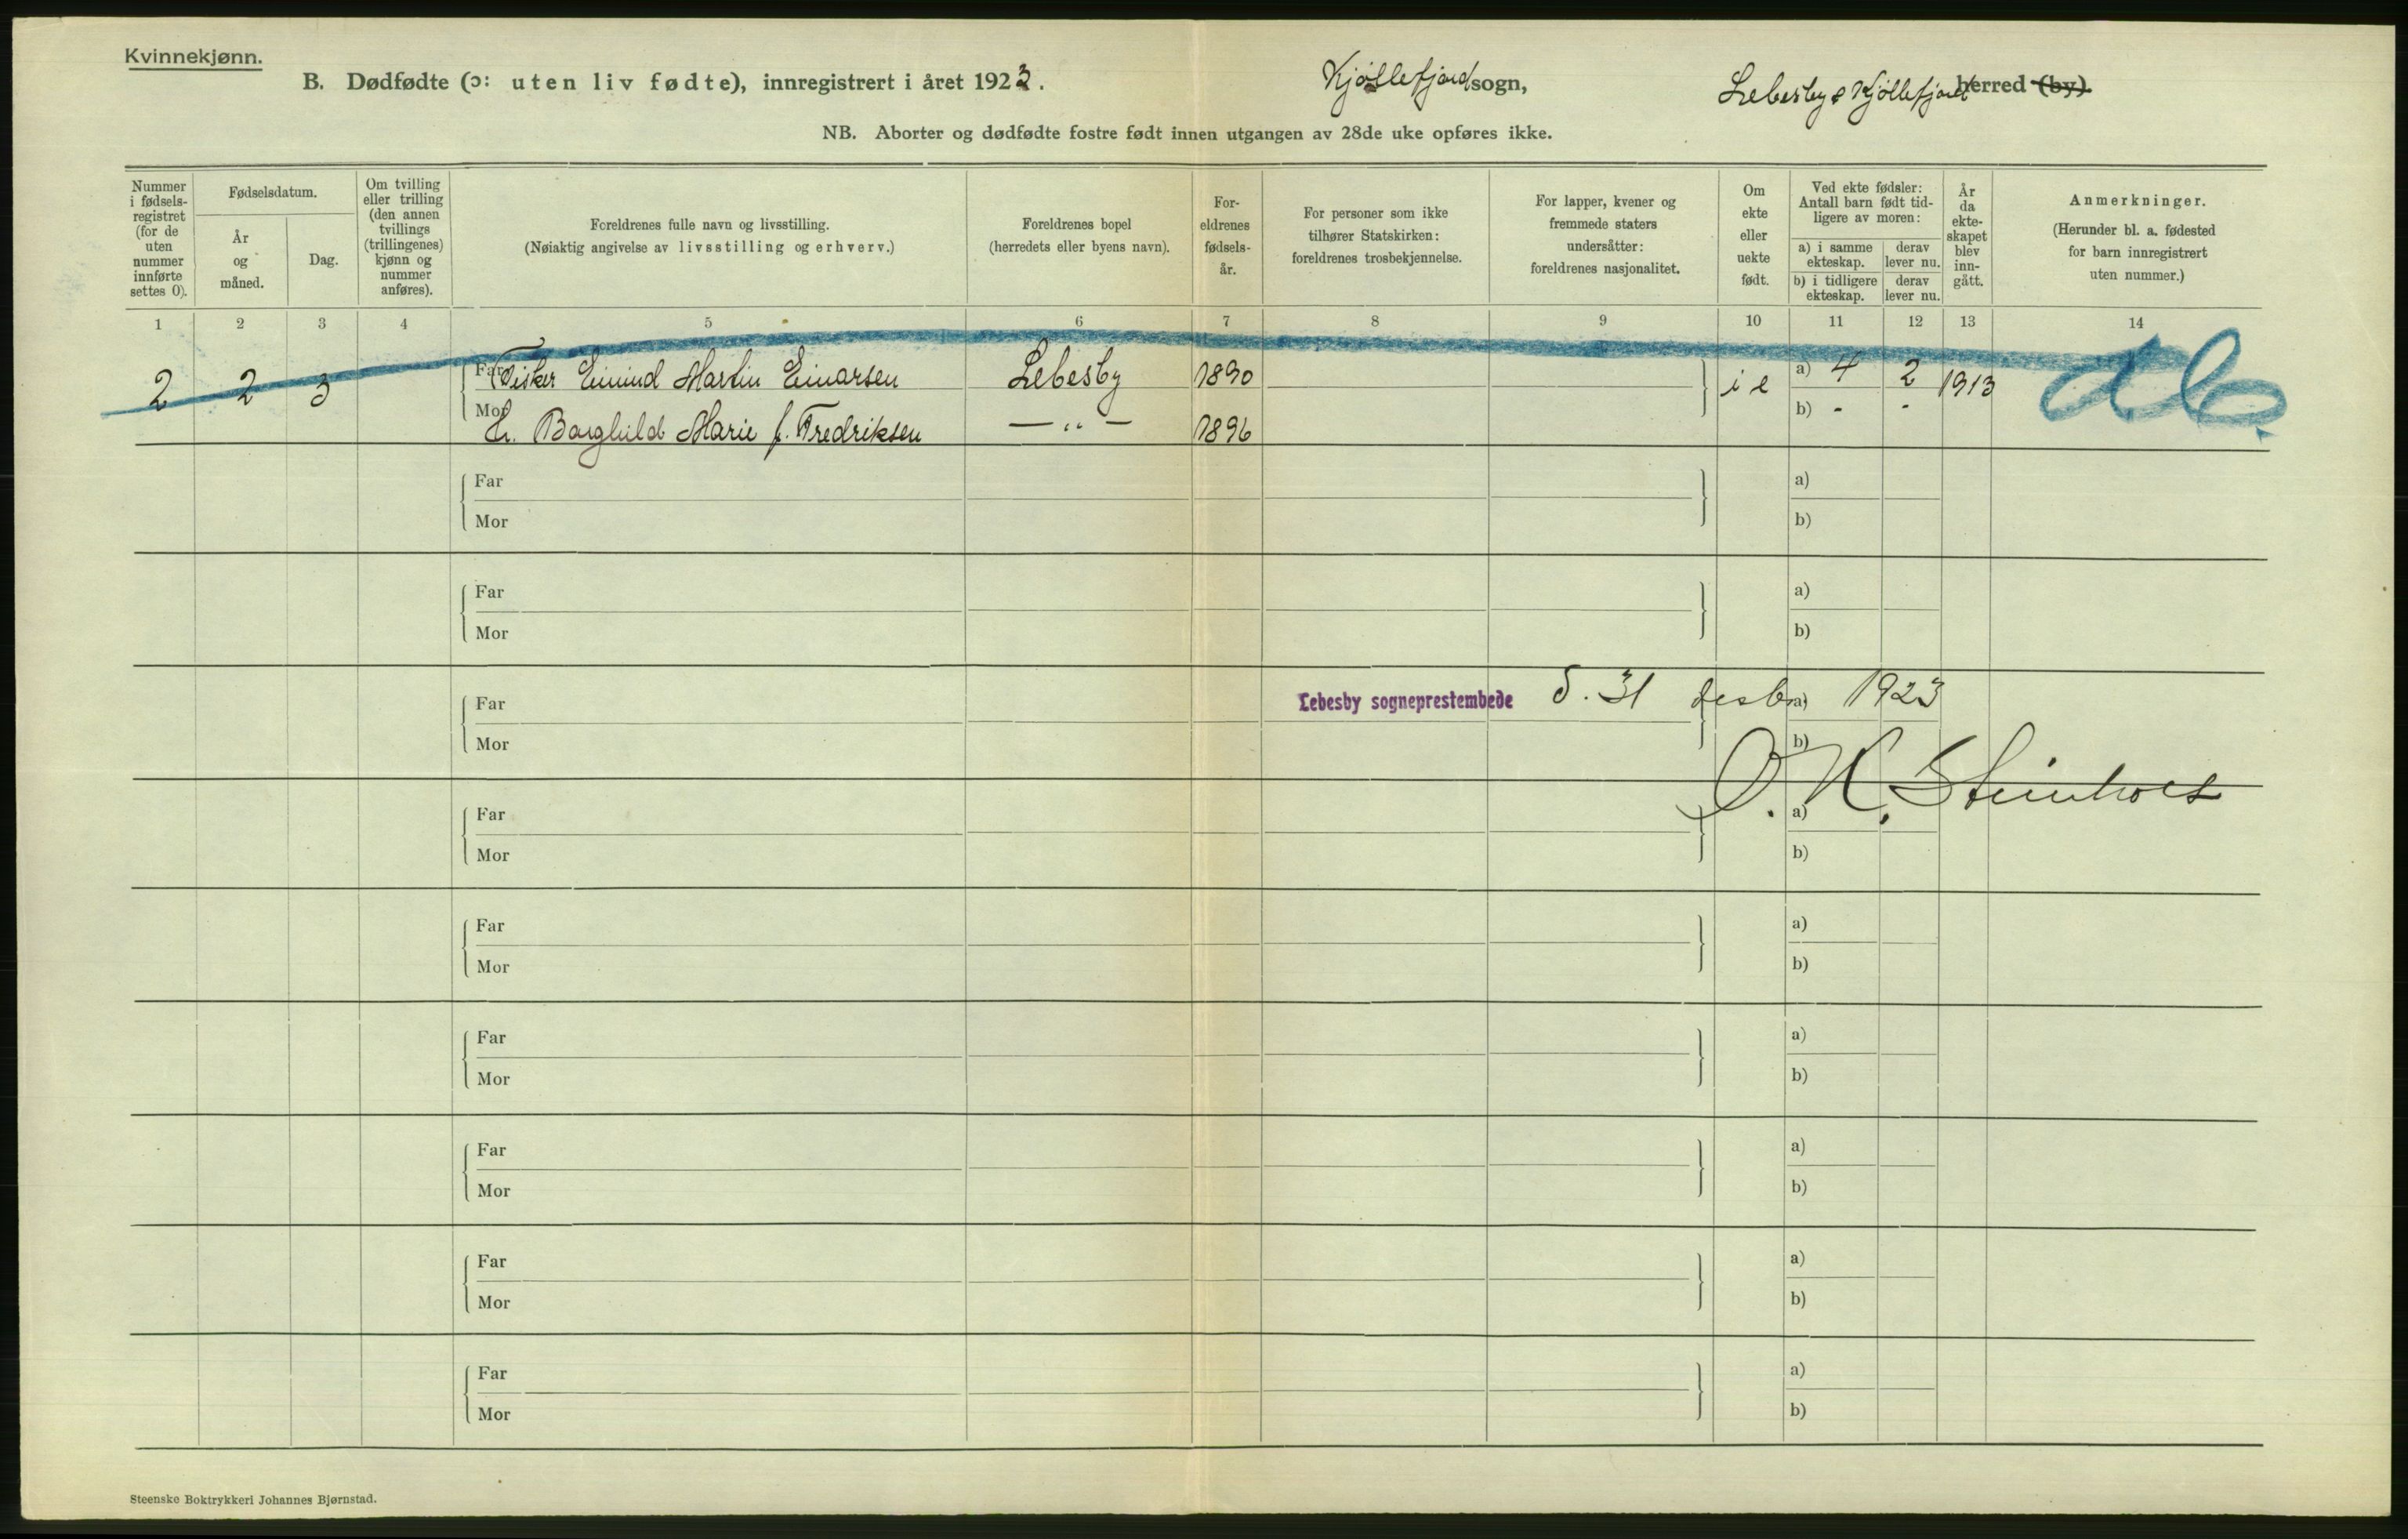 Kvinnekjønn.
B. Dødfødte (ɔ: uten liv fødte), innregistrert i året 1923.
Kjøllefjord sogn,
Lebesby & Kjøllefjord herred (by).
NB. Aborter og dødfødte fostre født innen utgangen av 28de uke opføres ikke.
Nummer i fødsels-registret (for de uten nummer innførte settes 0).
Fødselsdatum.
År og måned.
Dag.
Om tvilling eller trilling (den annen tvillings (trillingenes) kjønn og nummer anføres).
Foreldrenes fulle navn og livsstilling.
(Nøiaktig angivelse av livsstilling og erhverv.)
Foreldrenes bopel
(herredets eller byens navn).
For-eldrenes fødsels-år.
For personer som ikke tilhører Statskirken: foreldrenes trosbekjennelse.
For lapper, kvener og fremmede staters undersåtter: foreldrenes nasjonalitet.
Om ekte eller uekte født.
Ved ekte fødsler: Antall barn født tid-ligere av moren:
a) i samme ekteskap.
derav lever nu.
b) i tidligere ekteskap.
derav lever nu.
År da ekte-skapet blev inn-gått.
Anmerkninger.
(Herunder bl. a. fødested for barn innregistrert uten nummer.)
1 2 3 4 5 6 7 8 9 10 11 12 13 14
2 2 3 Far Fisker Eivind Martin Einarsen Lebesby 1890 i e a) 4 2 1913
Mor H. Borghild Marie f. Fredriksen — „ — 1896 b) - -
Far a)
Mor b)
Far a)
Mor b)
Far Lebesby sogneprestembede d. 31 desbr a) 1923
Mor b)
O. K. Steinholt
Far a)
Mor b)
Far a)
Mor b)
Far a)
Mor b)
Far a)
Mor b)
Far a)
Mor b)
Far a)
Mor b)
Steenske Boktrykkeri Johannes Bjørnstad.